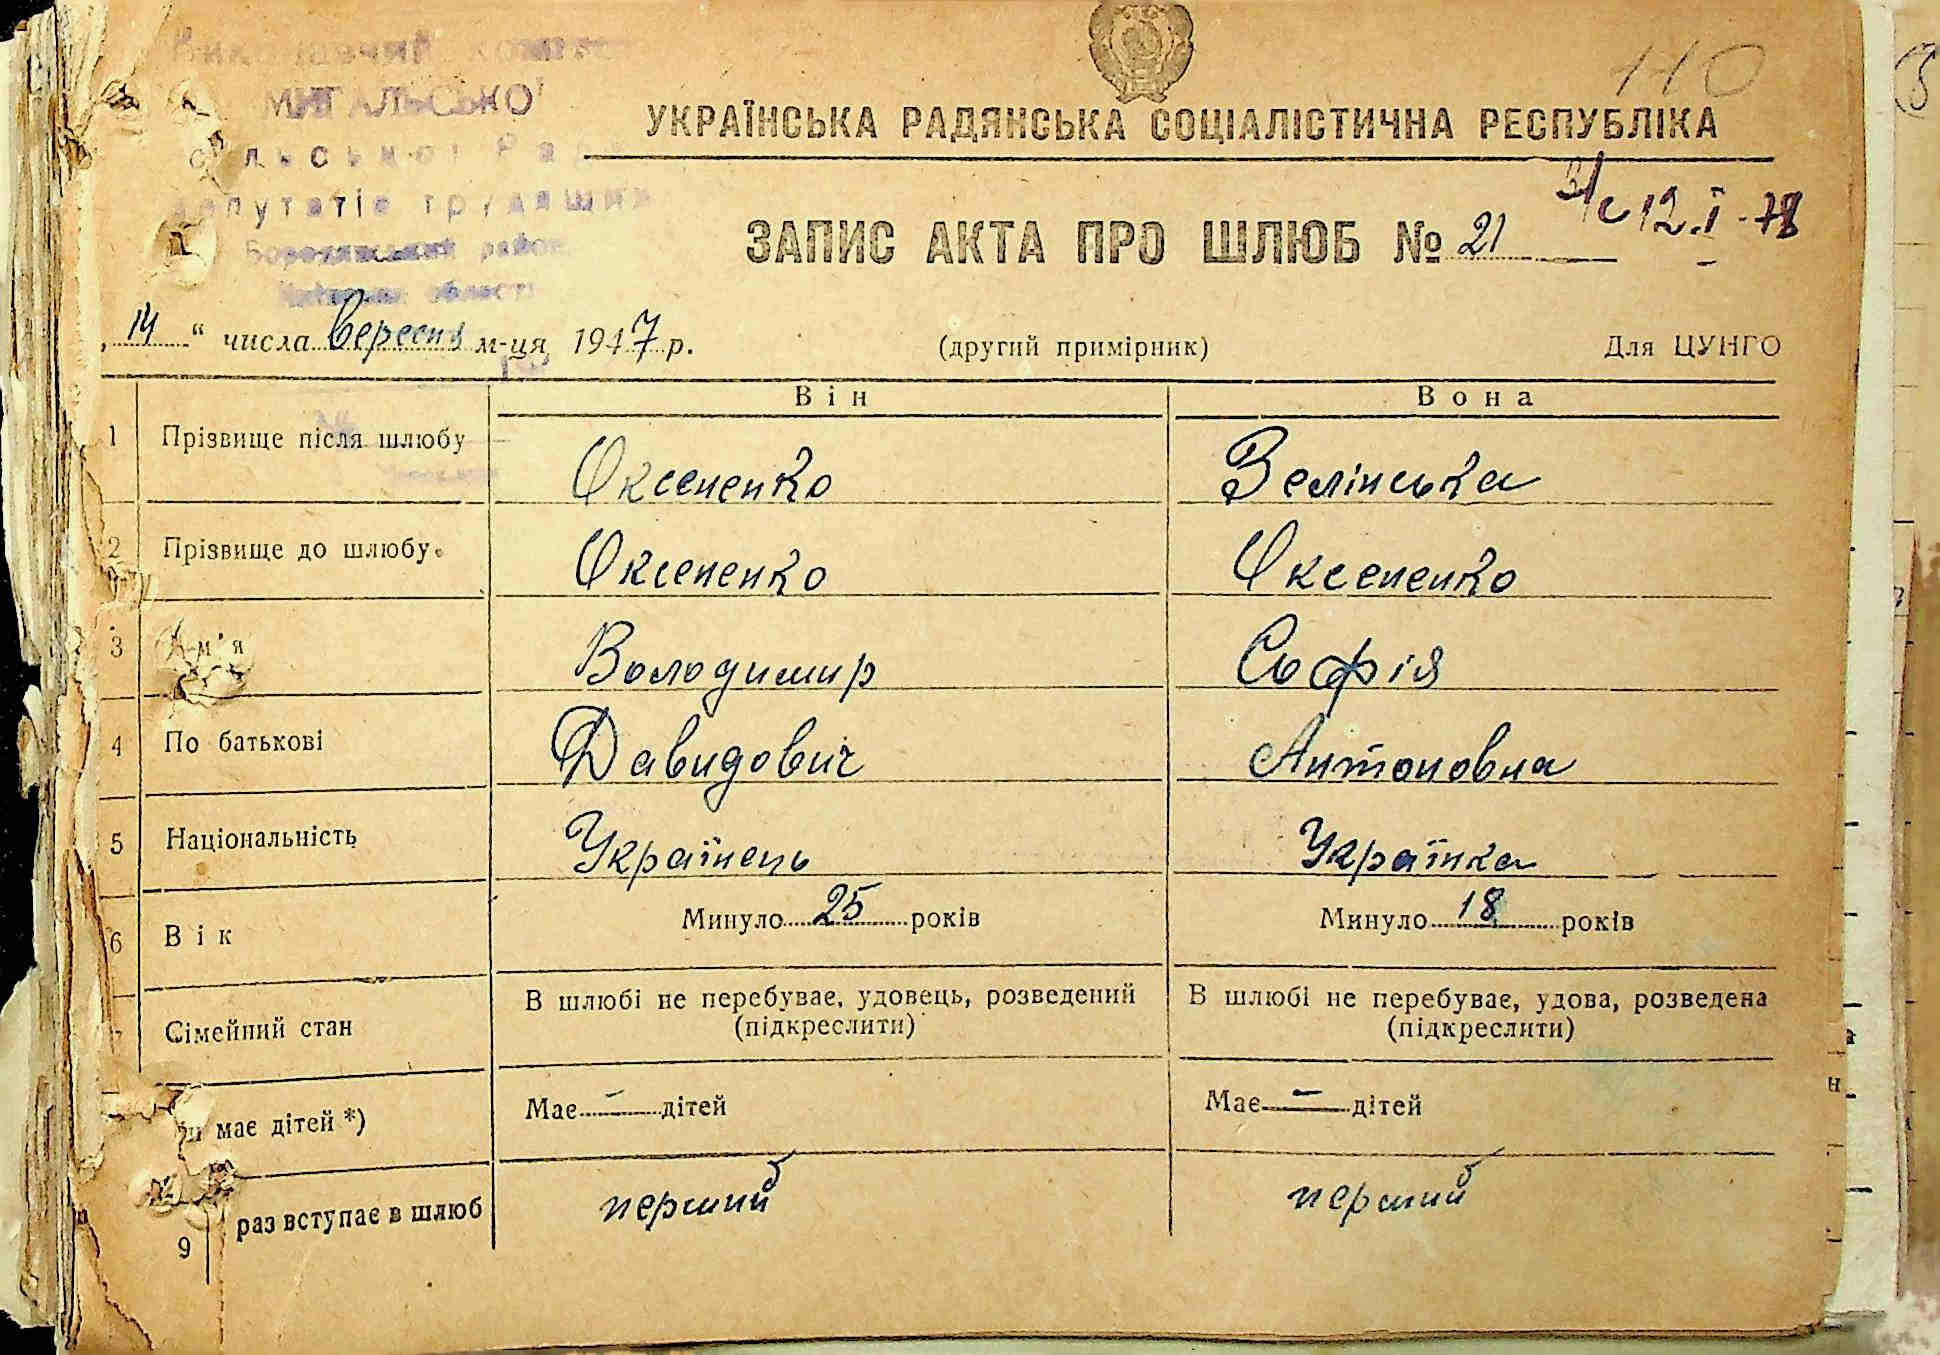 Виконавчий комітет
МИГАЛЬСЬКОЇ
сільської Ради
депутатів трудящих
Бородянський район
Київська область
110
УКРАЇНСЬКА РАДЯНСЬКА СОЦІАЛІСТИЧНА РЕСПУБЛІКА
12.I-78
ЗАПИС АКТА ПРО ШЛЮБ № 21
„14“ числа вересня м-ця 1947 р. (другий примірник) Для ЦУНГО
Він Вона
1 Прізвище після шлюбу Оксененко Зелінська
2 Прізвище до шлюбу Оксененко Оксененко
3 м'я Володимир Софія
4 По батькові Давидович Антоновна
5 Національність Українець Українка
6 Вік Минуло 25 років Минуло 18 років
Сімейний стан В шлюбі не перебуває, удовець, розведений В шлюбі не перебуває, удова, розведена
(підкреслити) (підкреслити)
має дітей *) Має - дітей Має - дітей
9 раз вступає в шлюб перший перший